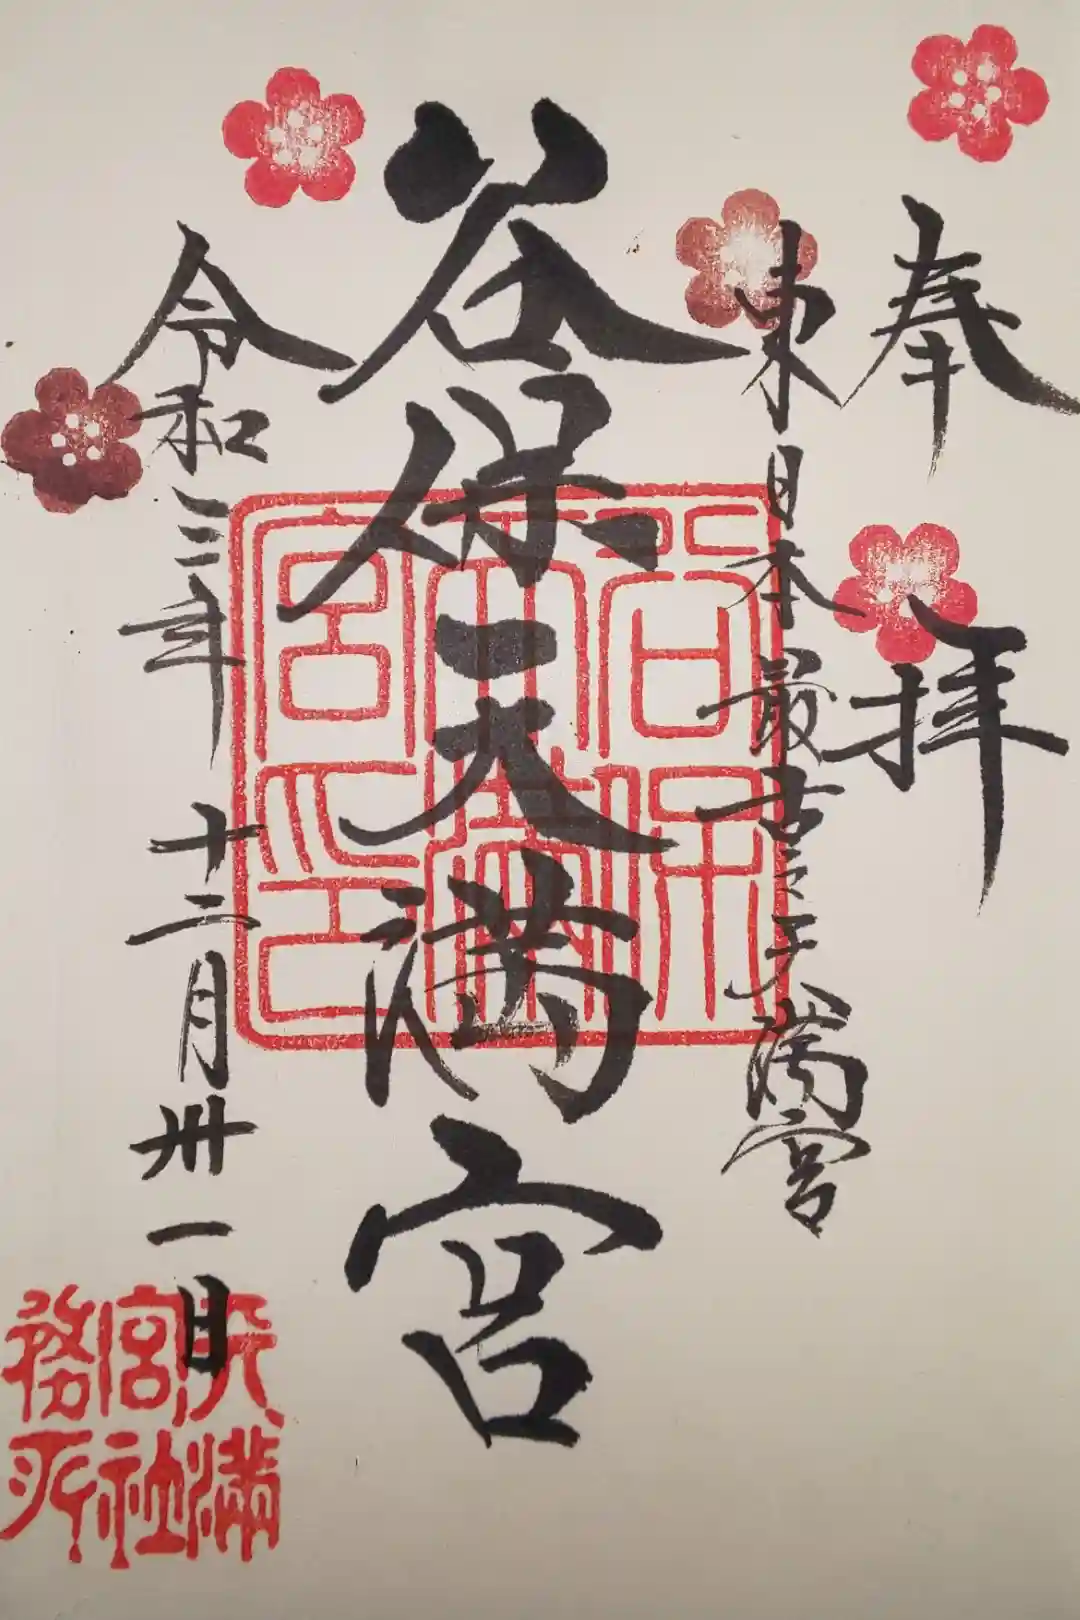 奉拝
東日本最古之天満宮
谷保天満宮
谷保天満宮印
令和三年十二月卅一日
天満宮社務所